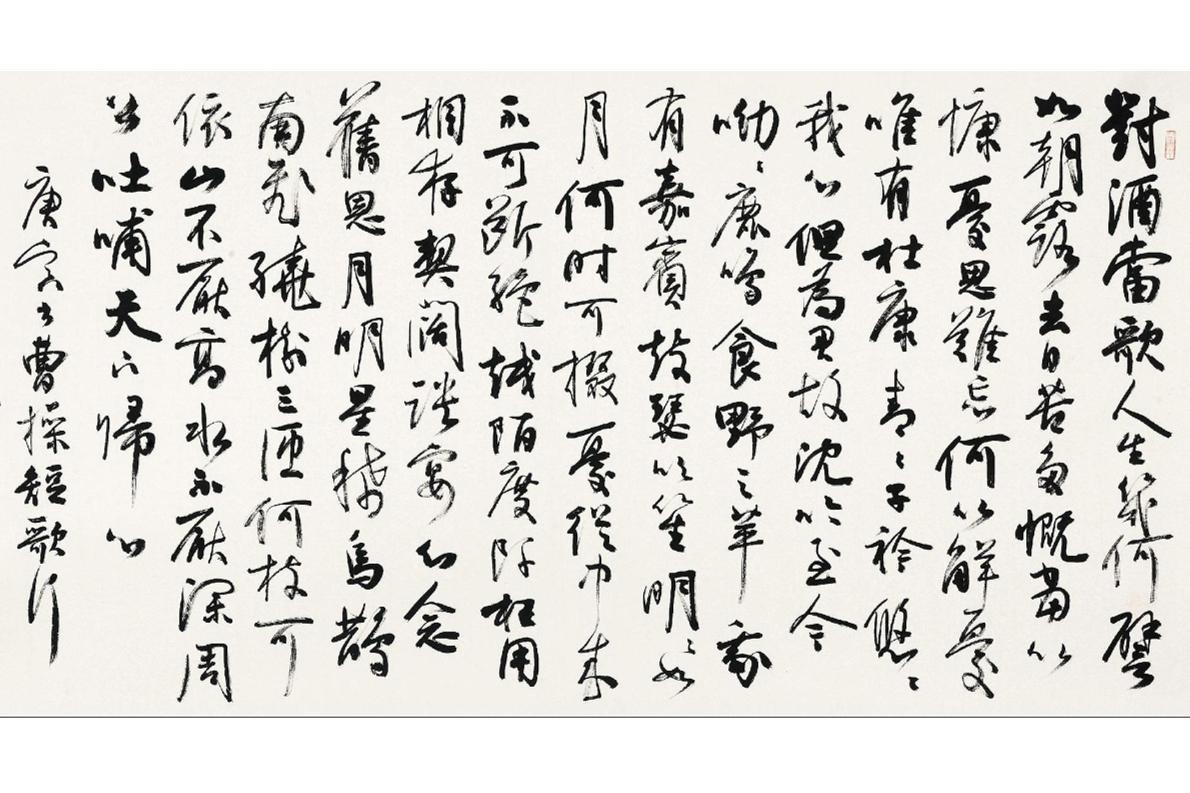 對酒當歌人生幾何譬
如朝露去日苦多慨當以
慷憂思難忘何以解憂
唯有杜康青々子衿悠々
我心但為君故沈吟至今
呦々鹿鳴食野之苹我
有嘉賓鼓瑟吹笙明々如
月何時可掇憂從中來
不可斷絕越陌度阡枉用
相存契闊談宴心念
舊恩月明星稀烏鵲
南飛繞樹三匝何枝可
依山不厭高水不厭深周
公吐哺天下歸心
庚寅書曹操短歌行